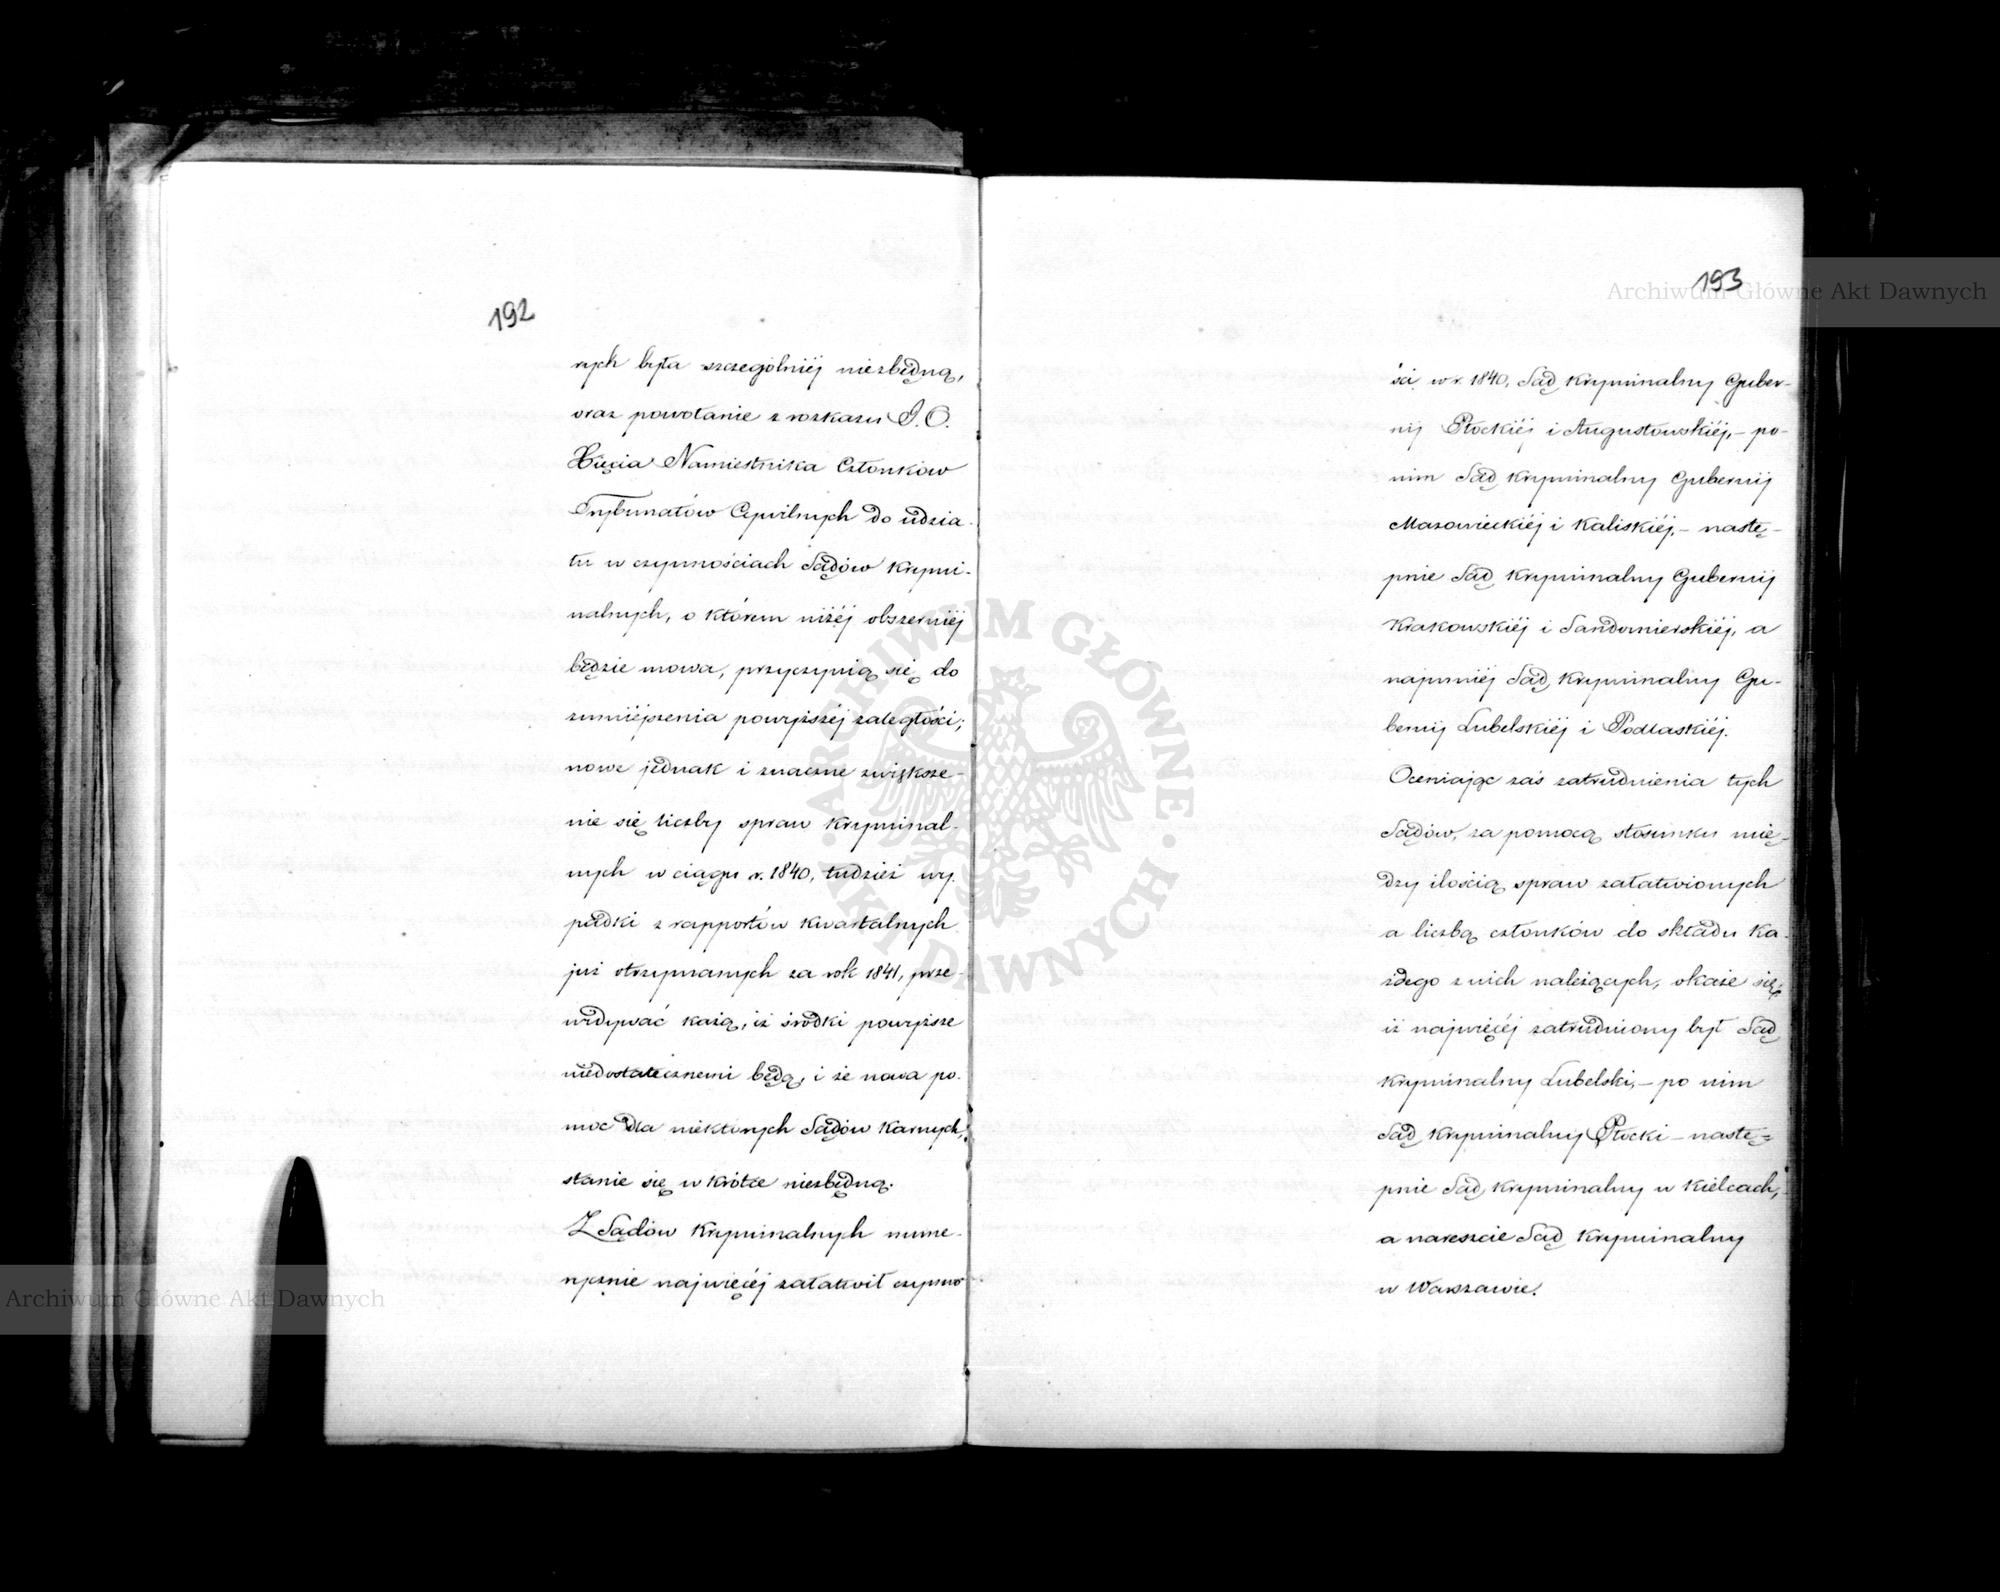 192
rych była szczególniéj niezbędną,
oraz powołanie z rozkazu J. O.
Xięcia Namiestnika Członków
Trybunałów Cywilnych do udzia-
łu w czynnościach Sądów Krymi-
nalnych, o którem niżéj obszerniéj
będzie mowa, przyczynią się do
zmniéjszenia powyższéj zaległości;
nowe jednak i znaczne zwiększe-
nie się liczby spraw kryminal-
nych w ciągu r. 1840, tudzież wy-
padki z rapportów kwartalnych
już otrzymanych za rok 1841, prze-
widywać każą, iż środki powyższe
niedostatecznemi będą, i że nowa po-
moc dla niektórych Sądów Karnych,
stanie się w krótce niezbędną.
Z Sądów Kryminalnych nume-
rycznie najwięcéj załatwił czynno-
193
ści w r. 1840, Sąd Kryminalny Guber-
nij Płockiéj i Augustowskiéj, – po
nim Sąd Kryminalny Gubernij
Mazowieckiéj i Kaliskiéj, – nastę-
pnie Sąd Kryminalny Gubernij
Krakowskiéj i Sandomierskiéj, a
najmniéj Sąd Kryminalny Gu-
bernij Lubelskiéj i Podlaskiéj.
Oceniając zaś zatrudnienia tych
Sądów, za pomocą stosunku mię-
dzy ilością spraw załatwionych
a liczbą członków do składu ka-
żdego z nich należących, okaże się,
iż najwięcéj zatrudniony był Sąd
Kryminalny Lubelski, – po nim
Sąd Kryminalny Płocki – nastę=
pnie Sąd Kryminalny w Kielcach,
a nareszcie Sąd Kryminalny
w Warszawie.
Archiwum Główne Akt Dawnych
Archiwum Główne Akt Dawnych
ARCHIWUM GŁÓWNE AKT DAWNYCH